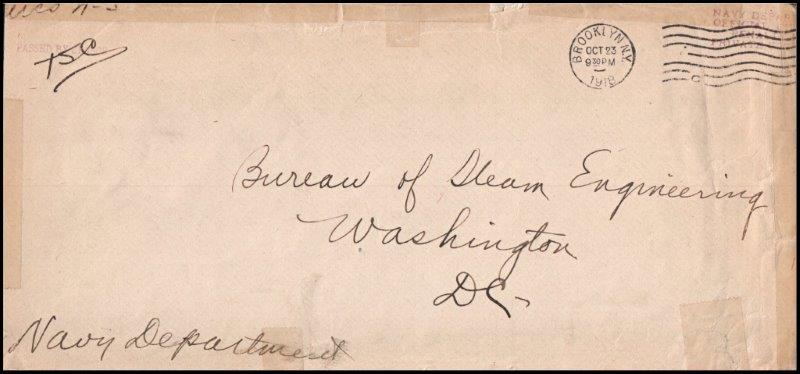 PASSED BY
BROOKLYN, N.Y.
OCT 23
9 30 PM
1918
NAVY DEPAR
OFFICIAL
PENAL
PRIVATE
Bureau of Steam Engineering
Washington
DC
Navy Department